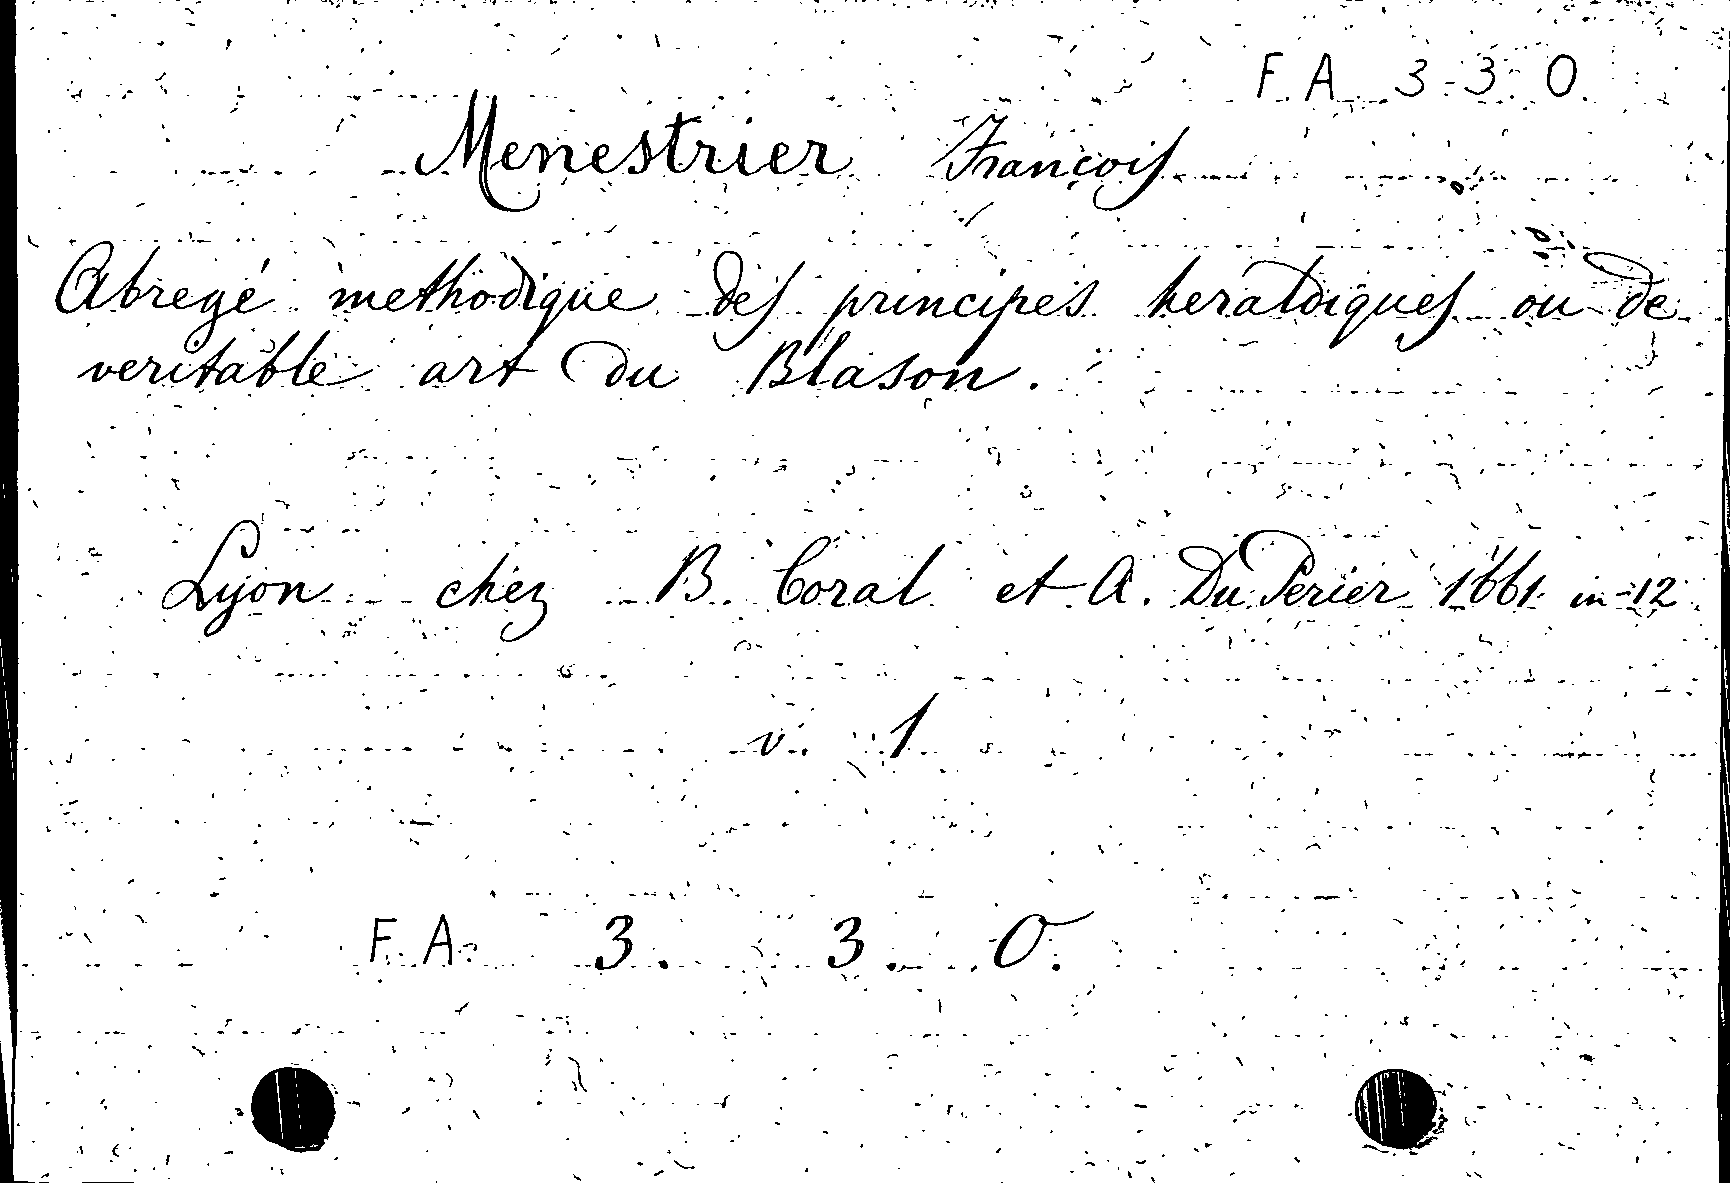 F. A 3. 3. O.
Menestrier François
Abregé methodique des principes heraldiques ou de
veritable art du Blason.
Lyon chez B. Coral et A. Du Perier 1661 in-12
v. 1
F. A. 3. 3. O.